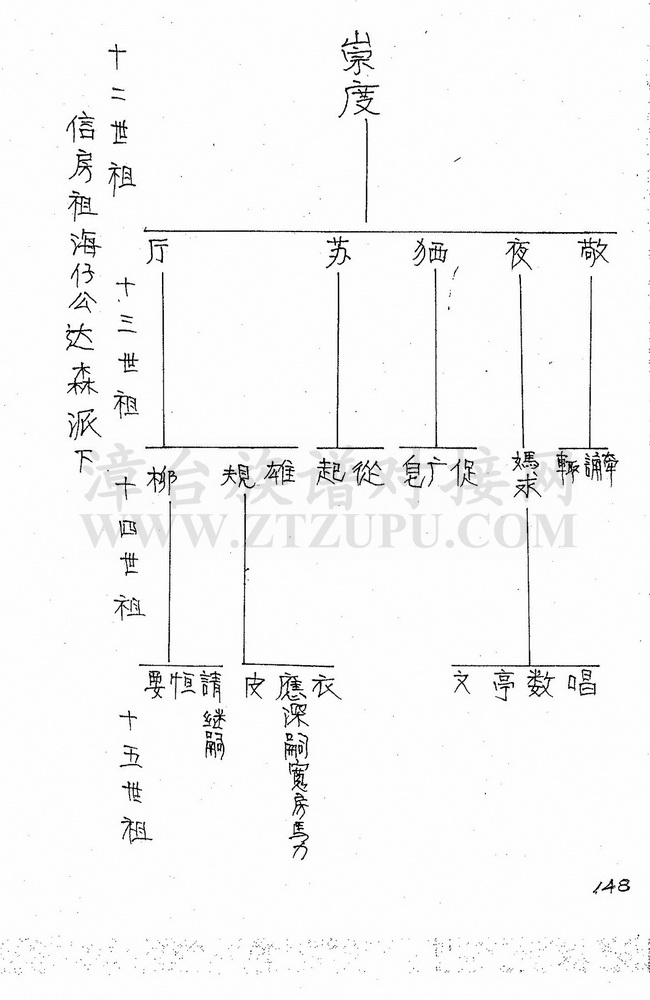 崇度
十二世祖
信房祖海仔公达森派下
敬
夜
苏
厅
十三世祖
誦
媽求
促
广
皀
從
起
雄
規
柳
十四世祖
唱
数
亭
文
衣
應深嗣寬房馬力
皮
請継嗣
恒
要
十五世祖
148
漳台族谱对接网
WWW.ZTZUPU.COM